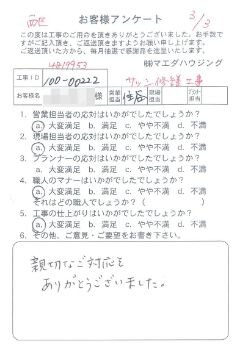 お客様アンケート
3/3
この度は工事のご用命を頂きありがとうございました。お手数で
すがご記入頂き、ご返送頂きますようお願い申し上げます。
ご返送頂いた方から、毎月抽選で感謝品を送呈いたします。
㈱マエダハウジング
工事ID
100-00222
サッシ修理工事
お客様名
様
営業担当
現場担当
プラン担当
1. 営業担当者の応対はいかがでしたでしょうか?
a. 大変満足 b. 満足 c. やや不満 d. 不満
2. 現場担当者の応対はいかがでしたでしょうか?
a. 大変満足 b. 満足 c. やや不満 d. 不満
3. プランナーの応対はいかがでしたでしょうか?
a. 大変満足 b. 満足 c. やや不満 d. 不満
4. 職人のマナーはいかがでしたでしょうか?
a. 大変満足 b. 満足 c. やや不満 d. 不満
それはどの職人でしょうか?( )
5. 工事の仕上がりはいかがでしたでしょうか?
a. 大変満足 b. 満足 c. やや不満 d. 不満
6. その他、ご意見・ご要望をお書き下さい。
親切なご対応を
ありがとうございました。